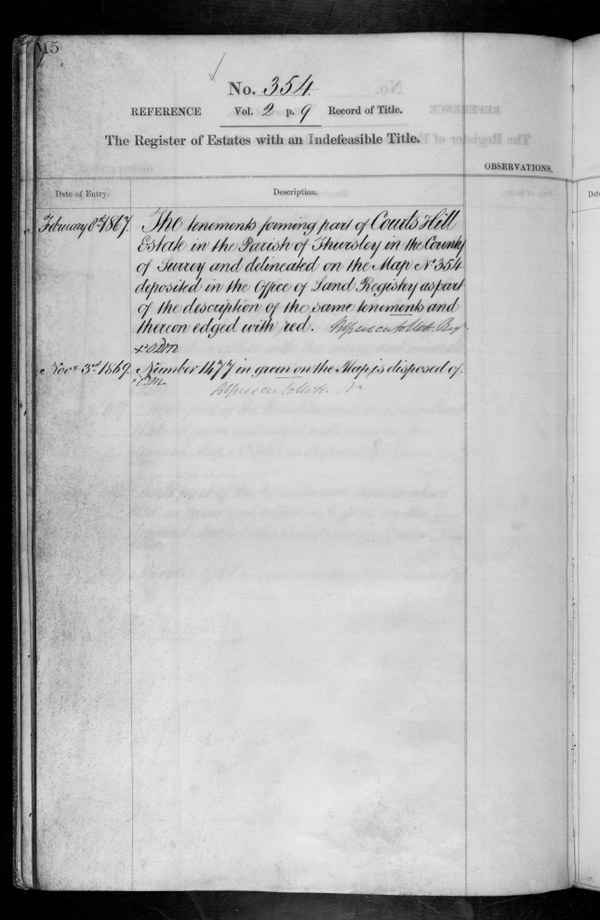 15
No. 354
REFERENCE Vol. 2 p. 9 Record of Title.
The Register of Estates with an Indefeasible Title.
OBSERVATIONS.
Date of Entry. Description.
February 8th 1867. The tenements forming part of Courts Hill
Estate in the Parish of Thursley in the County
of Surrey and delineated on the Map No 354
deposited in the Office of Land Registry as part
of the description of the same tenements and
thereon edged with red.
Novr 3rd 1869. Number 1477 in green on the Map, is disposed of.